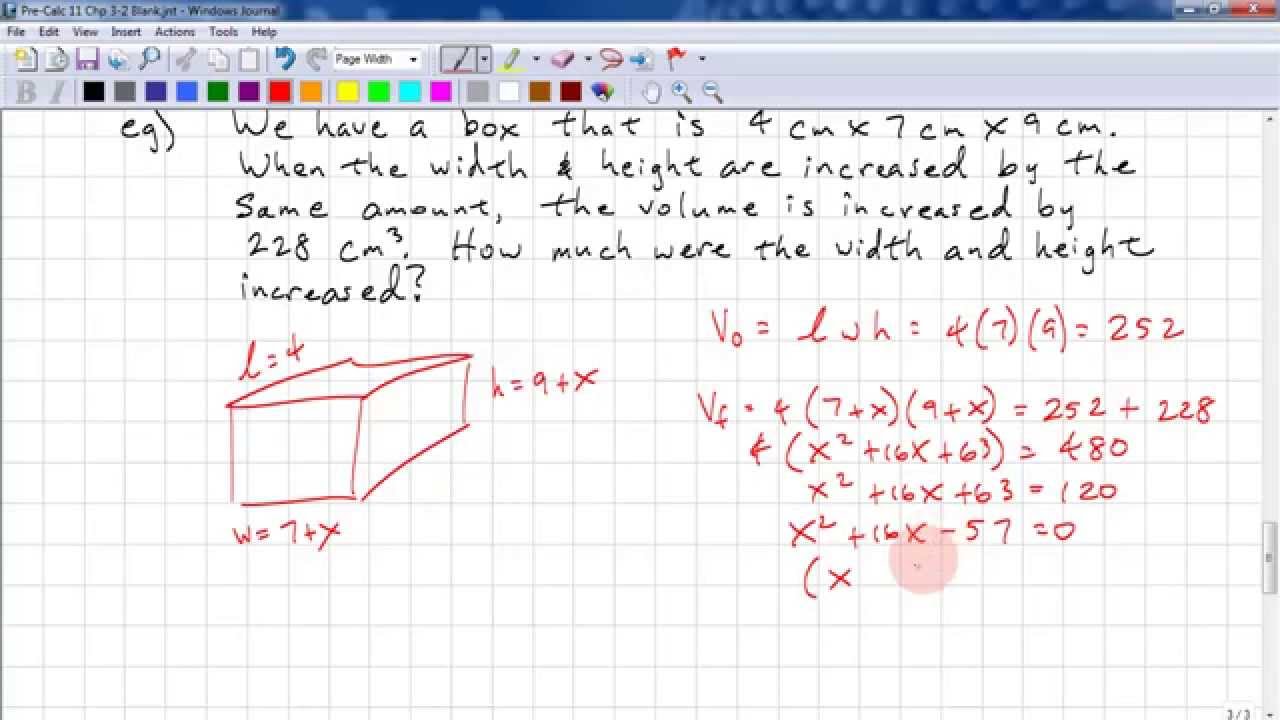 Pre-Calc 11 Chp 3-2 Blank.jnt - Windows Journal
File Edit View Insert Actions Tools Help
Page Width
B I
eg) We have a box that is 4 cm x 7 cm x 9 cm.
When the width & height are increased by the
Same amount, the volume is increased by
228 cm³. How much were the width and height
increased?
V₀ = l w h = 4(7)(9) = 252
l = 4
h = 9 + x
V_f = 4(7+x)(9+x) = 252 + 228
4(x² + 16x + 63) = 480
x² + 16x + 63 = 120
w = 7 + x
x² + 16x - 57 = 0
(x
3/3